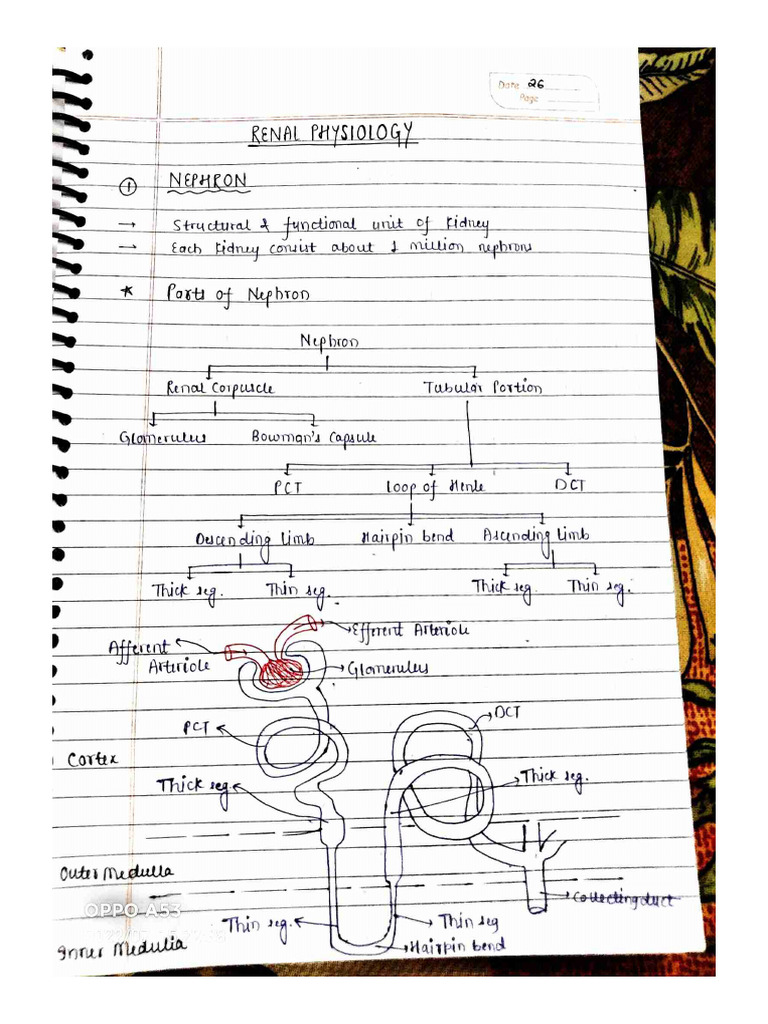 Date 26
Page
RENAL PHYSIOLOGY
① NEPHRON
→ Structural & functional unit of Kidney
→ Each Kidney consist about 1 million nephrons
* Parts of Nephron
Nephron
Renal Corpuscle Tubular Portion
Glomerulus Bowman's Capsule
PCT Loop of Henle DCT
Descending Limb Hairpin bend Ascending Limb
Thick seg. Thin seg. Thick seg. Thin seg.
Efferent Arteriole
Afferent
Arteriole
Glomerulus
PCT DCT
Cortex
Thick seg. Thick seg.
Outer Medulla
Collecting duct
OPPO A53
Thin seg. Thin seg
Inner Medulla Hairpin bend